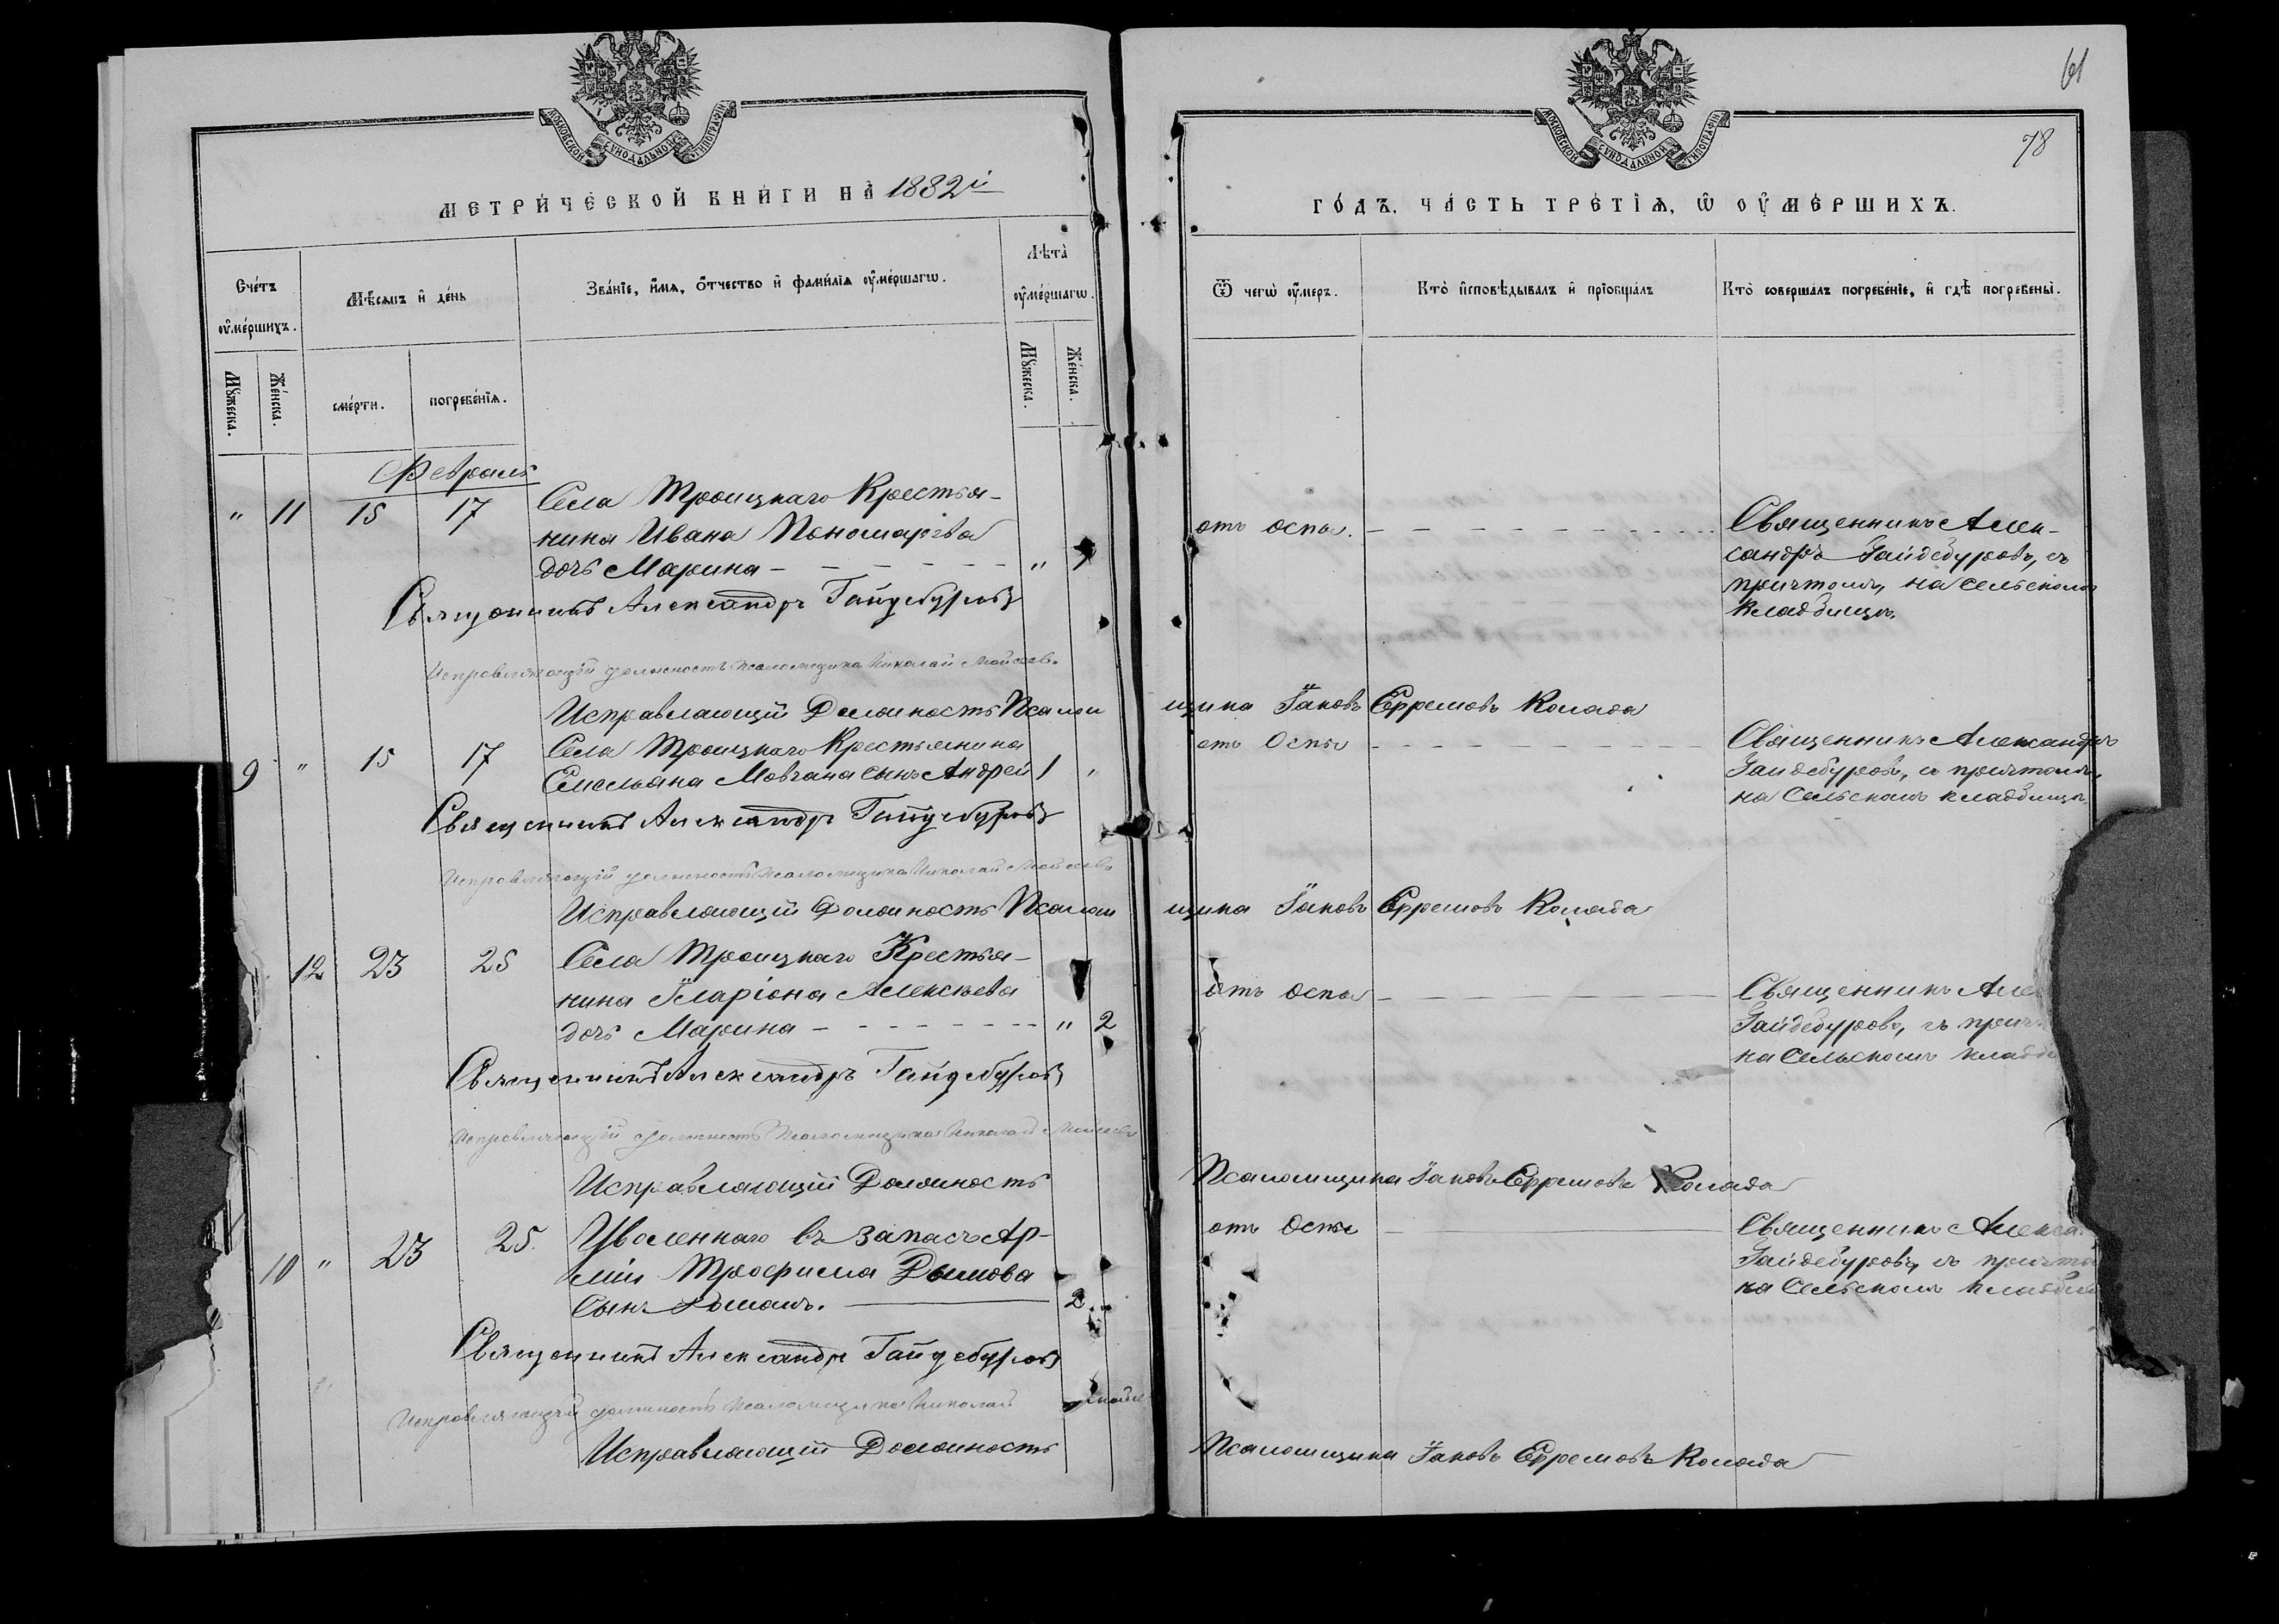 МОСКОВСКОЙ СѴНОДАЛЬНОЙ ТИПОГРАФІИ
МЕТРИ́ЧЕСКОЙ КНИ́ГИ НА̀ 1882й
Сче́тъ ᲂу҆ме́ршихъ.
Мѣ́сѧцъ и҆ де́нь
Зва́нїе, и҆́мѧ, ѻ҆́тчество и҆ фами́лїѧ ᲂу҆ме́ршагѡ.
Лѣ́та ᲂу҆ме́ршагѡ.
Мꙋ́жеска.
Же́нска.
сме́рти.
погребе́нїѧ.
Мꙋ́жеска.
Же́нска.
Февраль
" 11 15 17 Села Троицкаго Крестья-
нина Ивана Пономарева
дочь Марина - - - - - - "
Священникъ Александръ Гайдебуровъ
Исправляющій должность псаломщика Николай Мойсеевъ
Исправляющій Должность Псалом
9 " 15 17 Села Троицкаго Крестьянина
Емельяна Мовчана сынъ Андрей 1 "
Священникъ Александръ Гайдебуровъ
Исправляющій должность псаломщика Николай Мойсеевъ
Исправляющій Должность Псалом
12 23 25 Села Троицкаго Крестья-
нина Иларіона Алексѣева
дочь Марина - - - - - - - - " 2
Священникъ Александръ Гайдебуровъ
Исправляющій должность псаломщика Николай Мойсеевъ
Исправляющій Должность
10 " 23 25. Уволеннаго въ запасъ Ар-
міи Трофима Дымова
Сынъ Романъ. 2
Священникъ Александръ Гайдебуровъ
Исправляющій должность псаломщика Николай
Исправляющій Должность
61
78
МОСКОВСКОЙ СѴНОДАЛЬНОЙ ТИПОГРАФІИ
ГО́ДЪ, ЧА́СТЬ ТРЕ́ТЇѦ, Ѡ҆ ОУ҆МЕ́РШИХЪ.
Ѿ чегѡ̀ ᲂу҆́меръ.
Кто̀ и҆сповѣ́дывалъ и҆ прїѡбща́лъ
Кто̀ соверша́лъ погребе́нїе, и҆ гдѣ̀ погребены̀.
отъ оспы. - - - - - - - - Священникъ Алек-
сандръ Гайдебуровъ, съ
причтомъ, на сельскомъ
кладбищѣ.
щика Іаковъ Ефремовъ Коляда
отъ Оспы - - - - - - - - Священникъ Александръ
Гайдебуровъ, съ причтомъ,
на Сельскомъ кладбищѣ.
щика Іаковъ Ефремовъ Коляда
отъ оспы - - - - - - Священникъ Але
Гайдебуровъ, съ прич
на Сельскомъ кладб
Псаломщика Іаковъ Ефремовъ Коляда
отъ Оспы Священникъ Алекса
Гайдебуровъ, съ причто
на Сельскомъ кладби
Псаломщика Іаковъ Ефремовъ Коляда